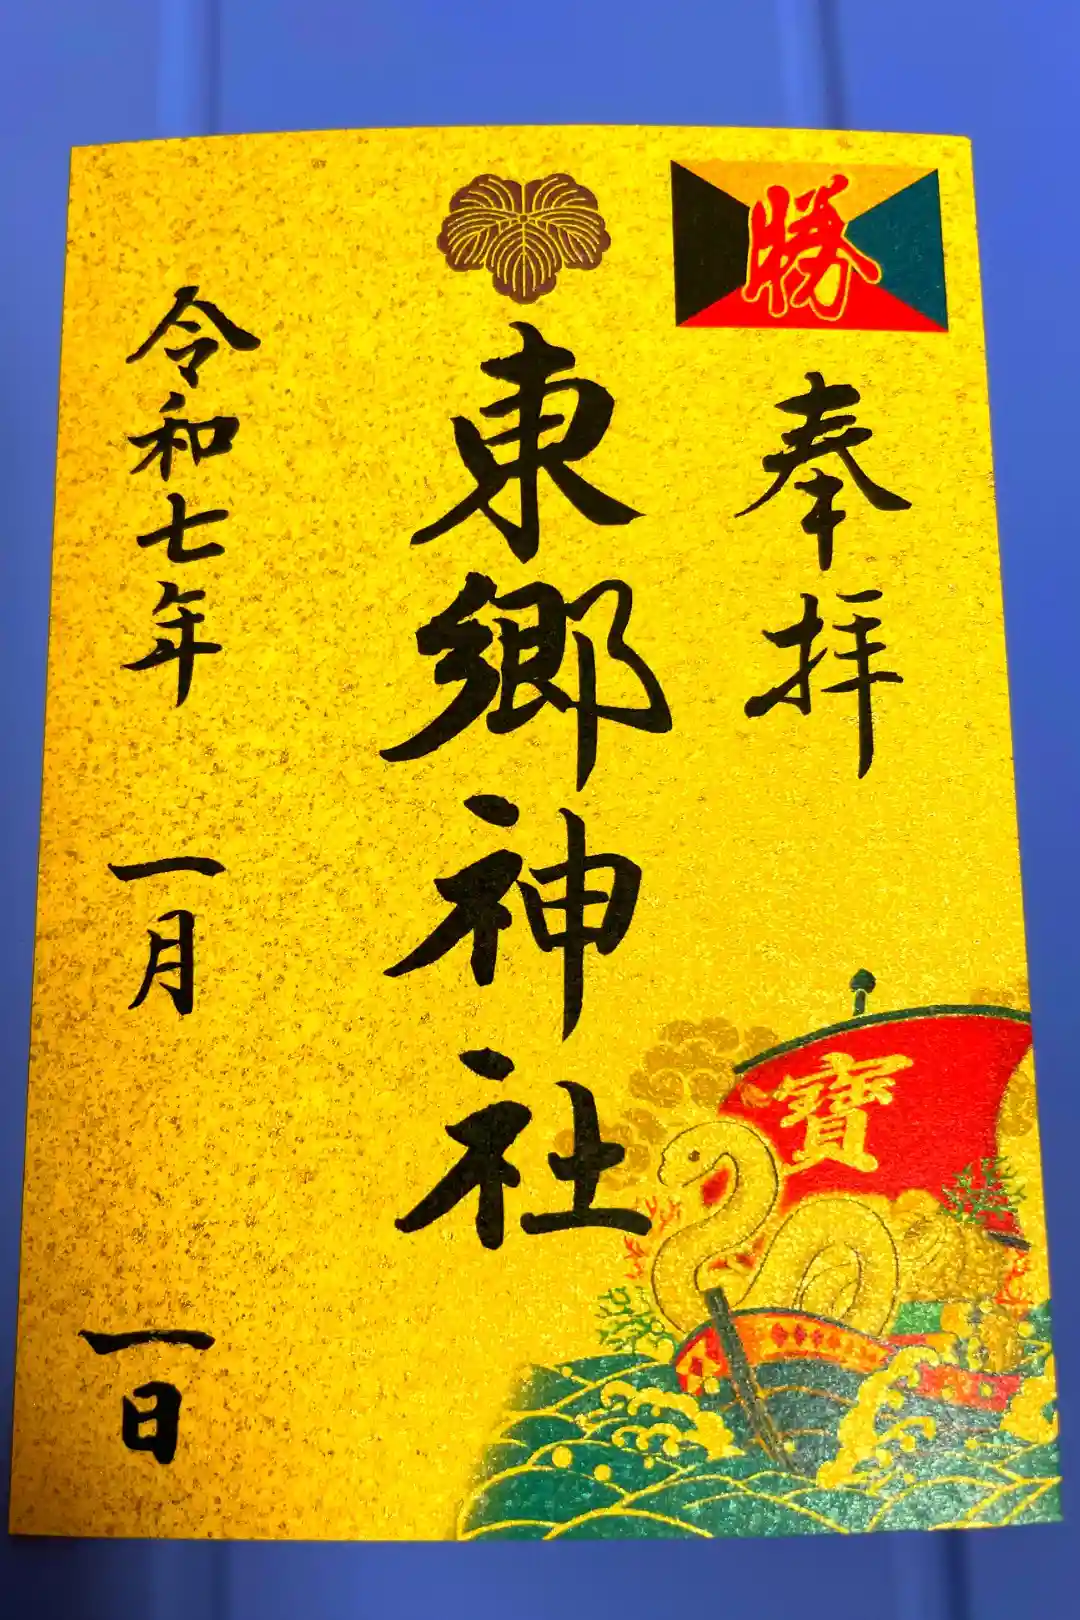 勝
奉拝
東郷神社
令和七年 一月 一日
寶